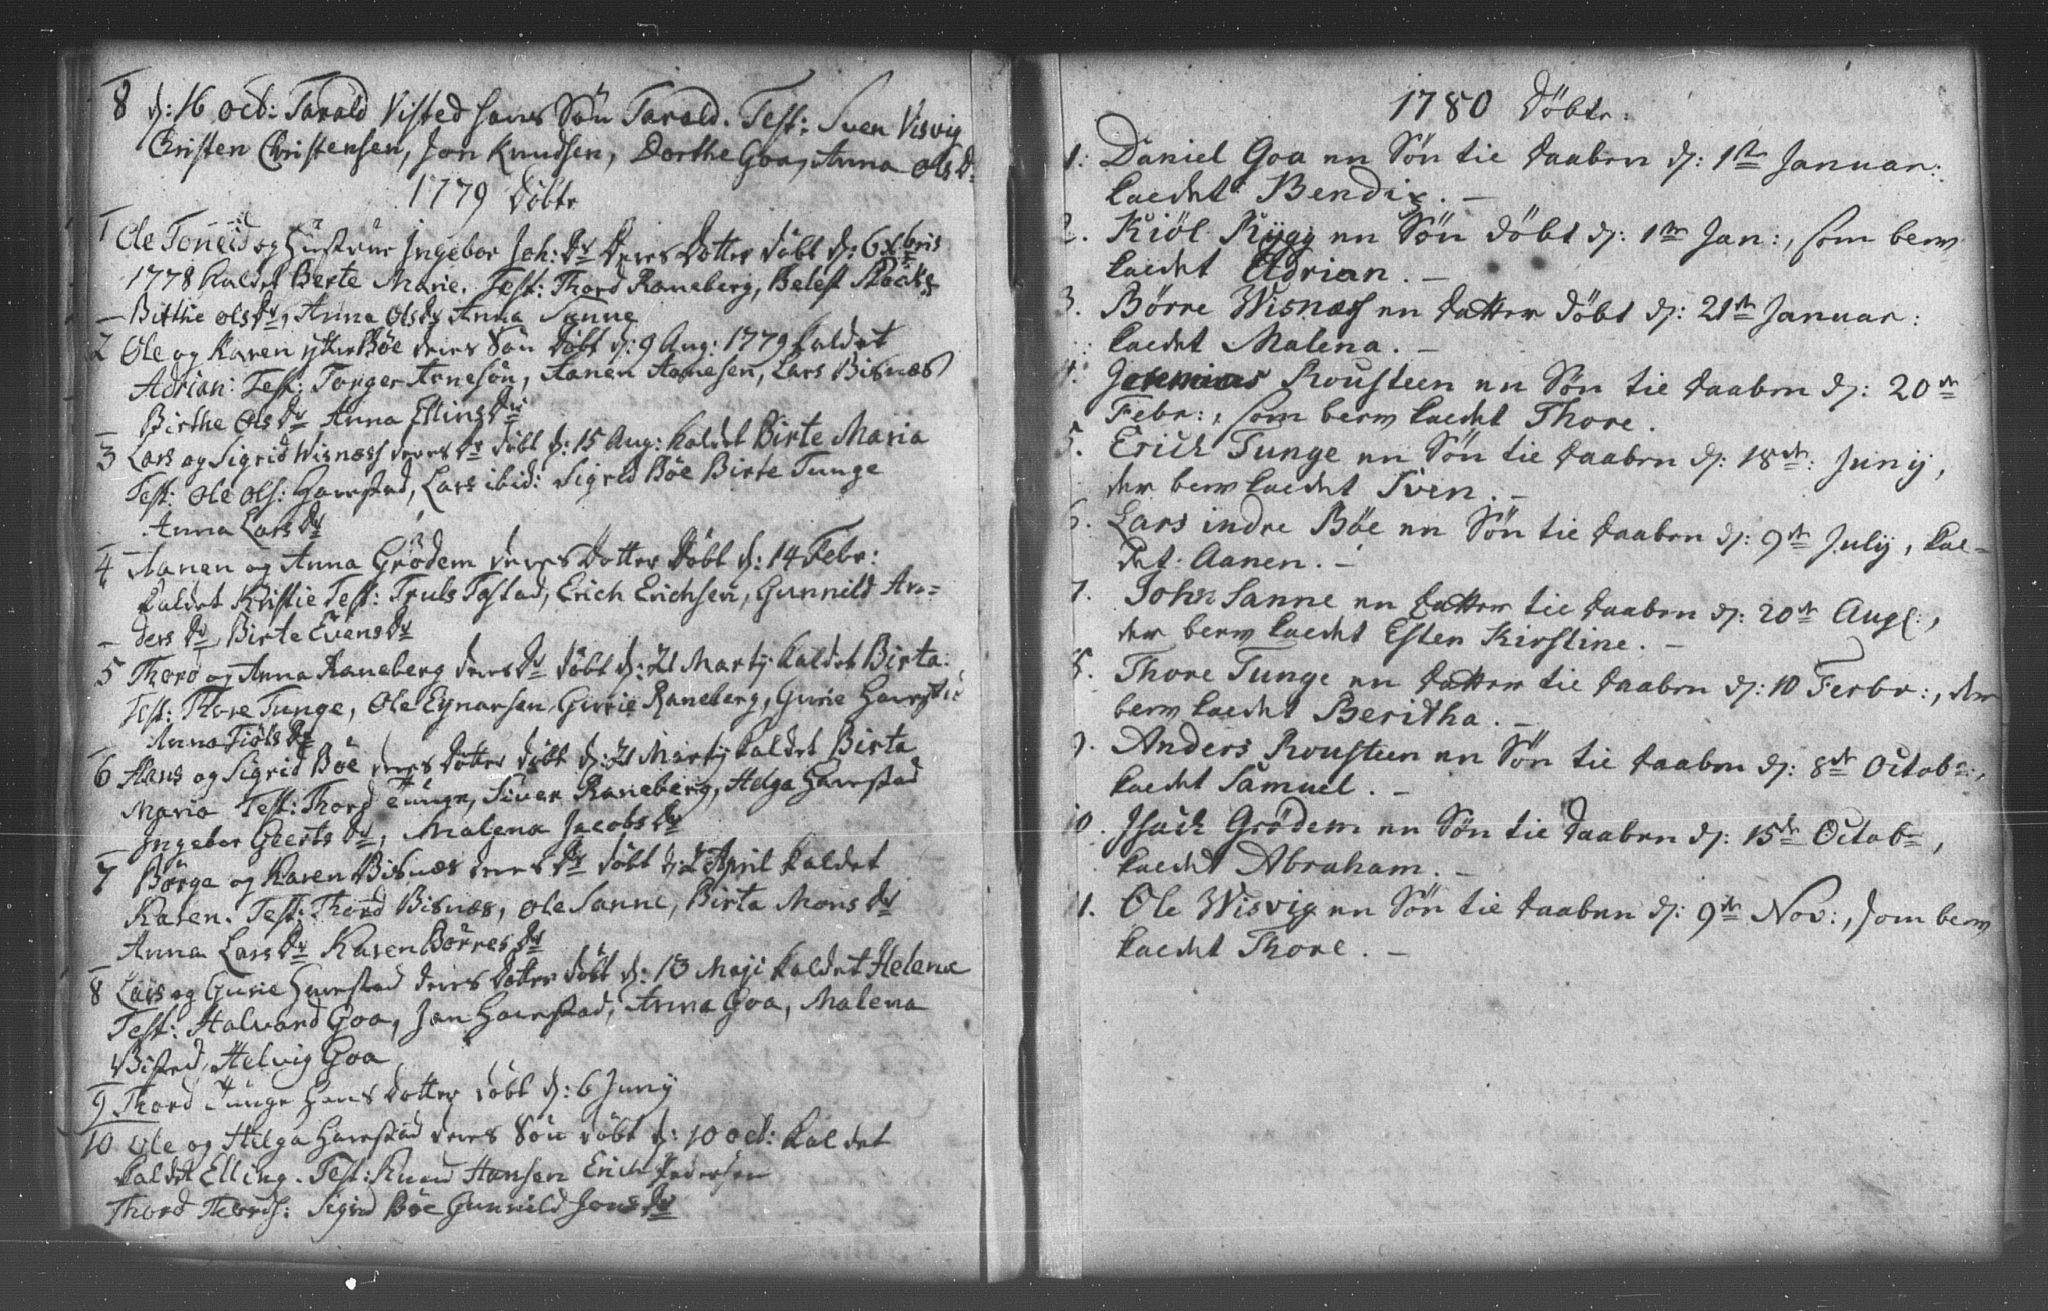 8 d: 16 Oct: Tarald Visted hans Søn Tarald. Test: Sven Visvig
Christen Christensen, Jon Knudsen, Dorthe Goa, Anna Ols D:
1779 Døbte
1 Ole Toneid og Hustrue Ingebor Joh: Dr Deres Dotter Døbt d: 6 xbris
1778 kaldet Berte Marie. Test: Thord Raneberg,
Birthe Olsdr, Anna Olsdr Anna Sanne
2 Ole og Karen ytre Bøe deres Søn Døbt d: 9 Aug: 1779 kaldet
Adrian: Test: Torger Arnesøn, Aanen Aanesen, Lars Bisnæs
Birthe Ols Dr Anna Ellins Dr
3 Lars og Sigrid Wisness deres Dr døbt d: 15 Aug: kaldet Birte Maria
Test: Ole Ols: Harestad, Lars ibid: Sigrid Bøe Birte Tunge
Anna Lars Dr
4 Aanen og Anna Grødem deres Dotter Døbt d: 14 Febr:
kaldet Kristie Test: Truls Tastad, Erich Erichsen, Gunnild An=
ders Dr, Birte Evens Dr
5 Thord og Anna Raneberg deres Dr døbt d: 21 Martij kaldet Birta:
Test: Thore Tunge, Ole Eynarsen, Gurie Raneberg, Gurie Harestad
Anna Tiøls Dr
6 Hans og Sigrid Bøe deres Dotter døbt d: 21 Martij kaldet Birta
Maria Test: Thord Tunge, Siver Raneberg, Helga Harestad
Ingebor Geerts Dr, Malena Jacobs Dr
7 Børge og Karen Bisnæs deres Dr døbt d: 2 April kaldet
Karen. Test: Thord Bisnæs, Ole Sanne, Birta Mons Dr
Anna Lars Dr Karen Børres Dr
8 Lars og Gurie Harestad deres Dotter døbt d: 13 Maji kaldet Helena
Test: Halvard Goa, Jan Harestad, Anna Goa, Malena
Visted, Helvig Goa
9 Thord Tunge Hans Dotter døbt d: 6 Junij
10 Ole og Helga Harestad deres Søn døbt d: 10 Oct: kaldet
kaldet Elling. Test: Knud Hansen Erich Pedersen
Thord Thords: Sigrid Bøe Gunnild Jons Dr
1780 Døbte:
1. Daniel Goa en Søn til Daaben d: 1te Januar:
kaldet Bendix. –
2. Kiøl Rygg en Søn døbt d: 1te Jan:, som blev
kaldet Adrian. –
3. Børre Wisnæs en Datter døbt d: 21de Januar:
kaldet Malena. –
4. Jeremias Rousteen en Søn til Daaben d: 20de
Febr:, som blev kaldet Thore.
5. Erich Tunge en Søn til Daaben d: 18de: Junij,
der blev kaldet Sven. –
6. Lars indre Bøe en Søn til Daaben d: 9de July, kal=
det: Aanen. –
7. John Sanne en Datter til Daaben d: 20de Aug:,
der blev kaldet Esten Kirstine. –
8. Thore Tunge en Datter til Daaben d: 10 Ferbr:, der
blev kaldet Beritha. –
9. Anders Rousteen en Søn til Daaben d: 8de Octobr:,
kaldet Samuel. –
10. Isach Grødem en Søn til Daaben d: 15de Octobr,
kaldet Abraham. –
11. Ole Wisvig en Søn til Daaben d: 9de Nov:, som blev
kaldet Thore. –